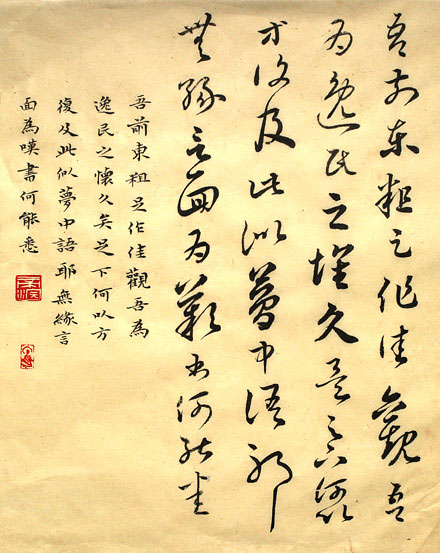 吾前東粗足作佳觀吾
為逸民之懷久矣足下何以
方復及此似夢中語耶
無緣言面為嘆書何能悉
吾前東粗足作佳觀吾為
逸民之懷久矣足下何以方
復及此似夢中語耶無緣言
面為嘆書何能悉